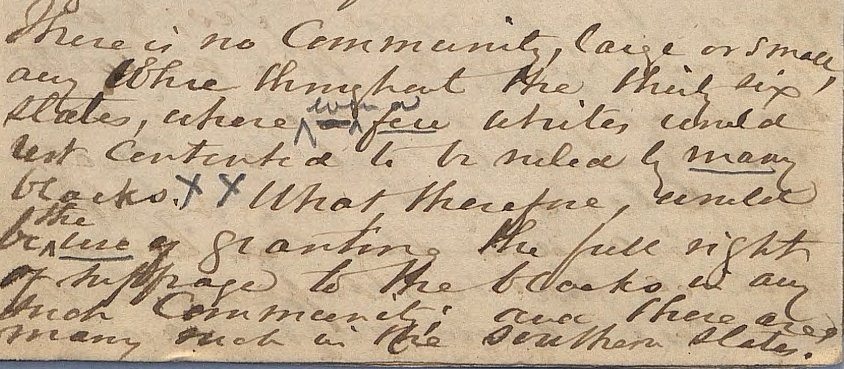 There is no Community, large or small,
any Where throughout the thirty six
States, where even a few whites would
rest Contented to be ruled by many
blacks. X X What therefore, would
be the use of granting the full right
of suffrage to the blacks in any
such Community; and there are
many such in the Southern States.